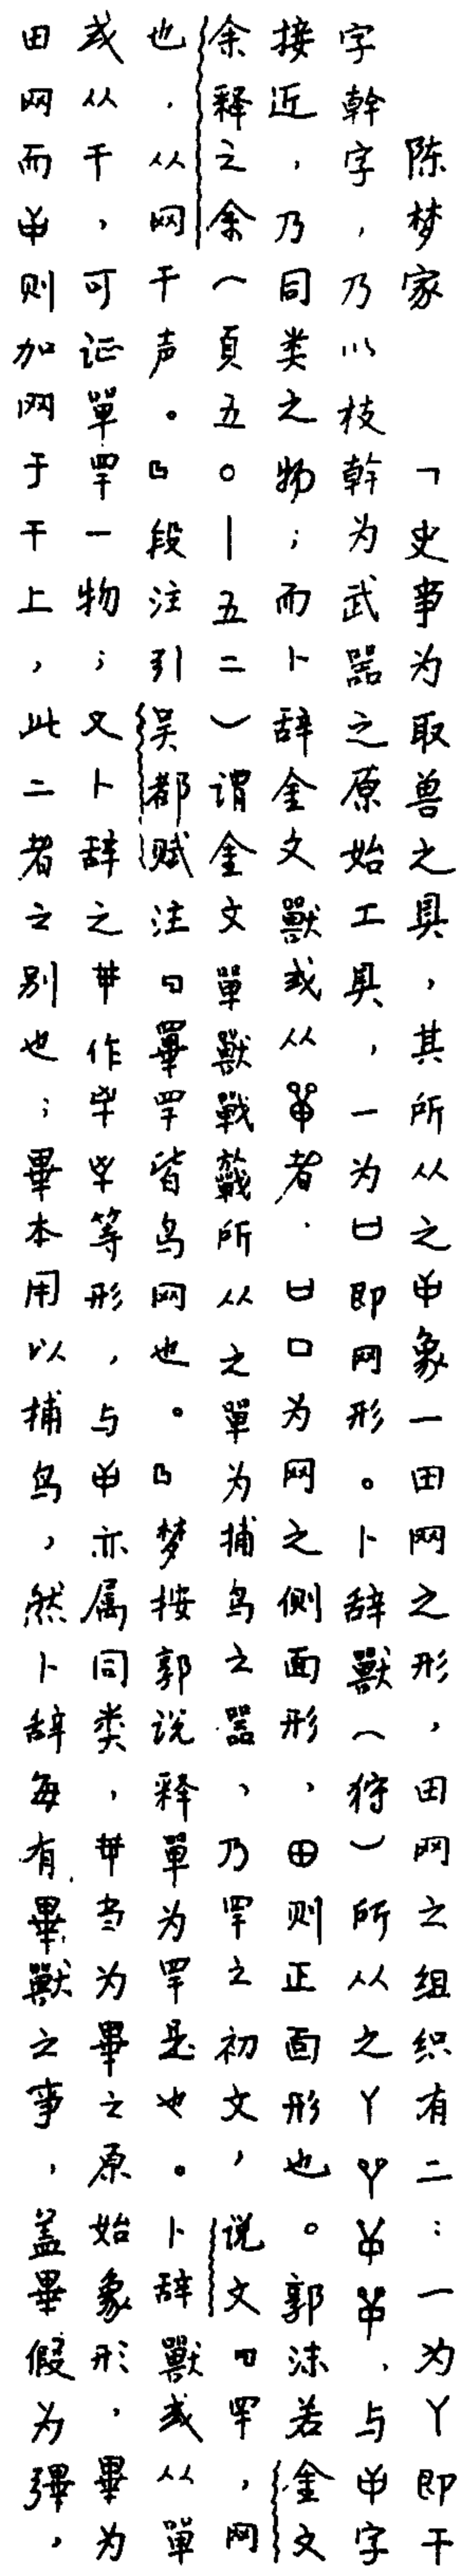 陈梦家　「史事为取兽之具，其所从之　象一田网之形，田网之组织有二：一为丫即干
字幹字，乃以枝幹为武器之原始工具，一为凵即网形。卜辞獸（狩）所从之丫　　　，与　字
接近，乃同类之物；而卜辞金文獸或从　者．凵口为网之侧面形，田则正面形也。郭沫若金文
余释之余（頁五〇—五二）谓金文單獸戰　所从之單为捕鸟之器，乃罕之初文，说文『罕，网
也，从网干声。』段注引吴都赋注『罼罕皆鸟网也。』梦按郭说释單为罕是也。卜辞獸或从單
或从干，可证單罕一物；又卜辞之　作　　等形，与　亦属同类，　当为畢之原始象形，畢为
田网而　则加网于干上，此二者之别也；畢本用以捕鸟，然卜辞每有畢獸之事，盖畢假为㢶，